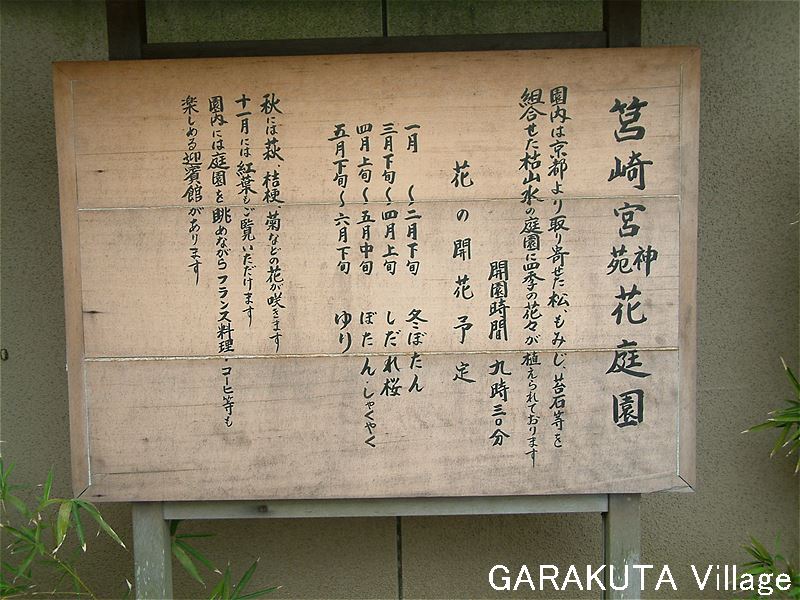 筥崎宮神苑花庭園
園内は京都より取り寄せた松、もみじ、苔石等を
組合せた枯山水の庭園に四季の花々が植えられております
開園時間 九時三〇分
花の開花予定
一月 〜二月下旬 冬ぼたん
三月下旬〜四月上旬 しだれ桜
四月上旬〜五月中旬 ぼたん・しゃくやく
五月下旬〜六月下旬 ゆり
秋には萩、桔梗、菊などの花が咲きます
十一月には紅葉もご覧いただけます
園内には庭園を眺めながらフランス料理・コーヒ等も
楽しめる迎賓館があります
GARAKUTA Village